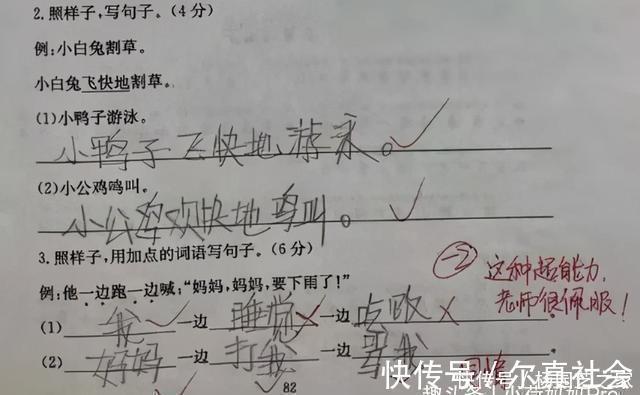 2.照样子,写句子。(4分)
例:小白兔割草。
小白兔飞快地割草。
(1)小鸭子游泳。
小鸭子飞快地游泳。
(2)小公鸡鸣叫。
小公鸡欢快地鸣叫。
3.照样子,用加点的词语写句子。(6分)
一2 这种超能力,
老师很佩服!
例:他一边跑一边喊:“妈妈,妈妈,要下雨了!”
(1) 我 一边 睡觉 一边 吃饭 。
(2) 妈妈 一边 打我 一边 骂我
82
快传号\尔真社会